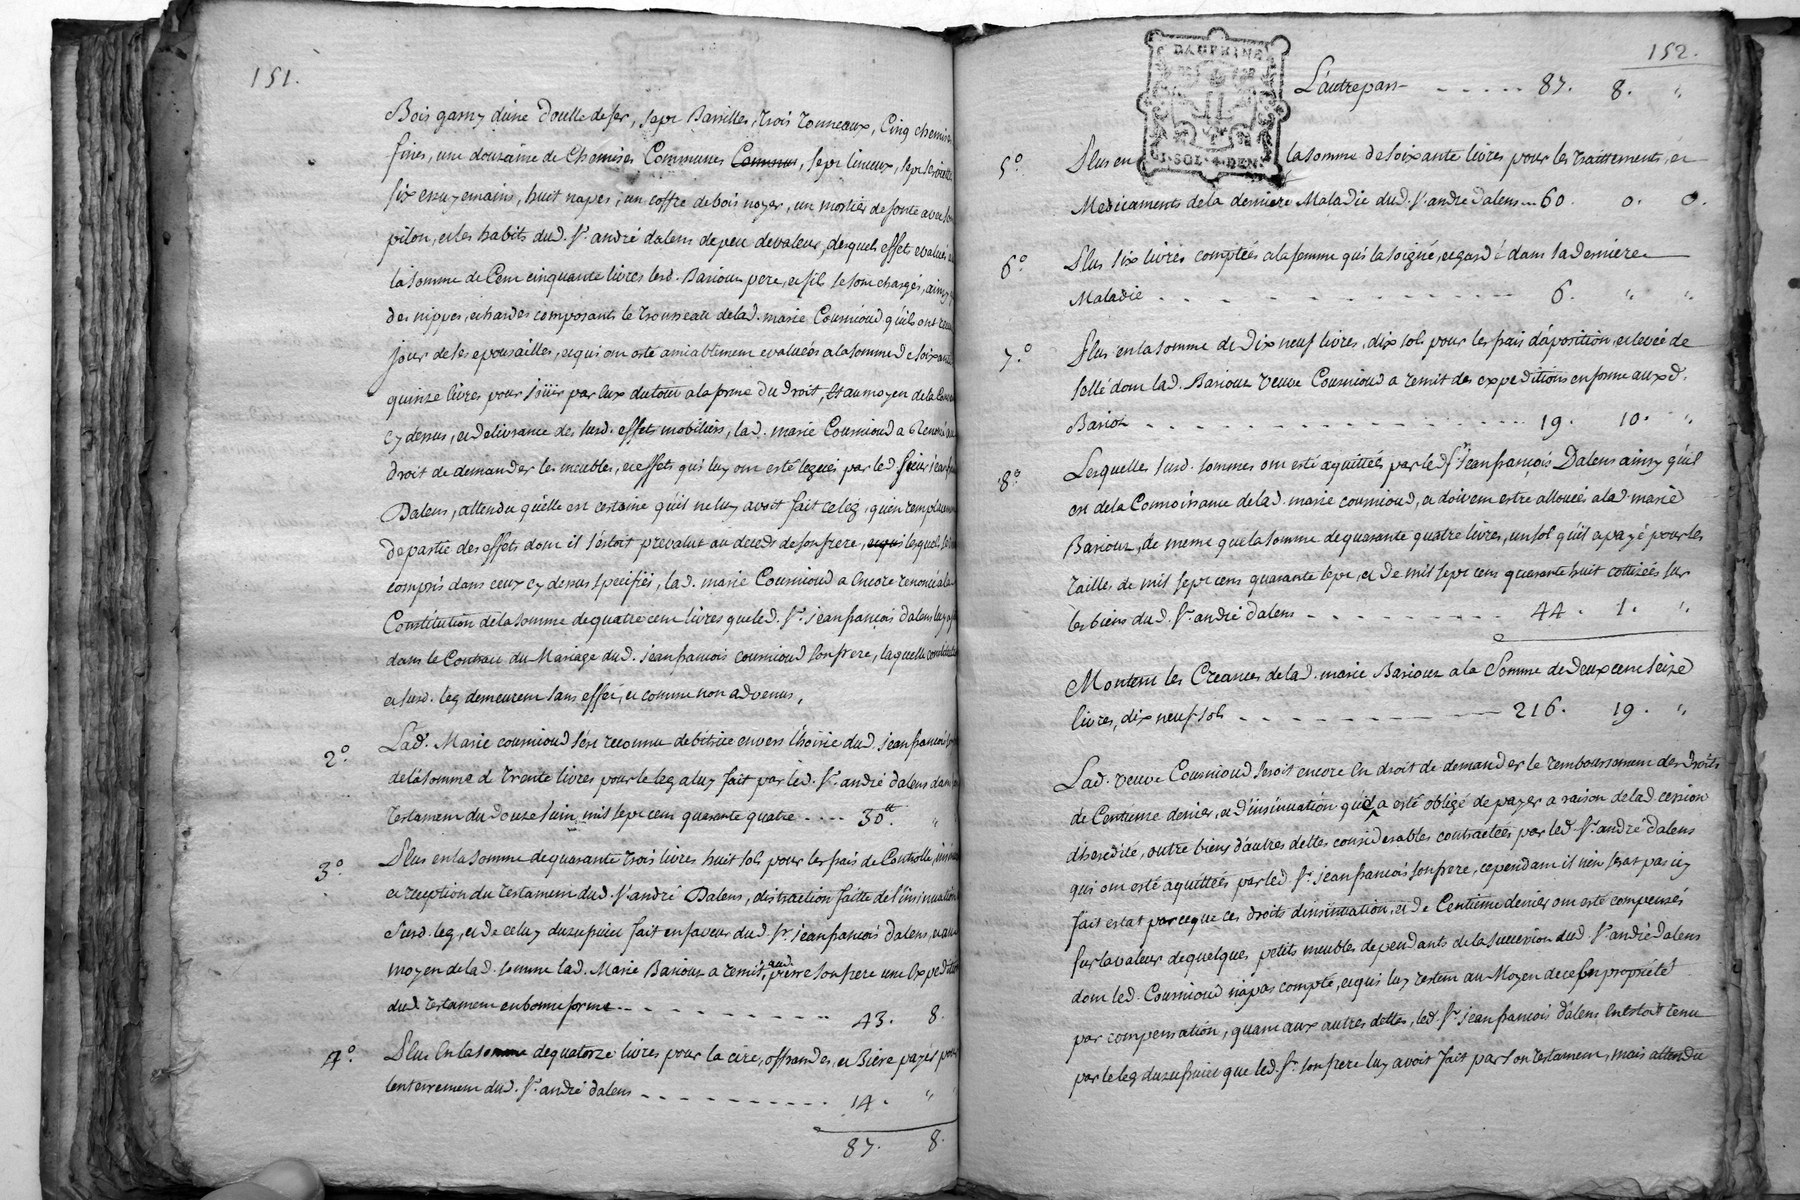 151.
Bois garny d'une Doulle de fer, sept Barilles, trois tonneaux, Cinq chemises
fines, une douzaine de Chemises Communes Communes, sept linceux, sept serviettes
six essuyemains, huit napes, un coffre debois noyer, un mortier defonte avec son
pilon, et les habits dud. Sr. andré dalens depeu devaleur, desquels effets evalués a
la somme de Cent cinquante livres lesd. Barioux pere, et fils se sont chargés, ainsy que
des nippes, et hardes composants le trousseau delad. marie Cournioud qu'ils ont receu
jour deses epousailles, et qui ont esté amiablement evaluées ala somme de soixante
quinze livres pour servir par eux du tout a la forme du droit, Et au moyen dela
cy dessus, et delivrance des susd. effets mobiliers, lad. marie Cournioud a renoncé au
droit de demander les meubles, et effets qui luy ont esté legués par led. sieur jean françois
Dalens, attendu qu'elle est certaine qu'il ne luy avoit fait celeg, qu'en remplacement
departie des effets dont il s'estoit prevalut au deceds deson frere, et qui lesquels
compris dans ceux cy dessus specifiés, lad. marie Cournioud a Encore renoncé ala
Constitution dela somme dequatre cent livres queled. Sr. jean françois dalens luy a fait
dans le Contract du Mariage dud. jean francois cournioud son frere, laquelle constitution
et susd. leg demeurent sans effet, et comme non advenus,
2° Lad. Marie cournioud s'est reconnue debitrice envers l'hoirie dud. jean francois
dela somme de trente livres pour le leg a luy fait par led. Sr. andré dalens dans son
testament du douze juin, mil sept cent quarante quatre .... 30.tt " "
3° Plus en la somme de quarante trois livres huit sols pour les frais de Controlle,
et reception du testament dud. Sr. andré Dalens, distraction faitte de l'insinuation
susd. leg, et de celuy d'uzufruict fait en faveur dud. Sr. jean francois dalens, et au
moyen delad. somme lad. Marie Barioux a remis aud. pierre son frere une Expedition
dud testament en bonne forme ........ 43. 8.
4° Plus En la somme de quatorze livres pour la cire, offrandes, et Biere payés pour
l'enterrement dud. Sr. andré dalens ........ 14. " "
87. 8.
152.
L'autrepart ..... 87. 8. "
DAUPHINE
1.SOL.4.DEN.
5° Plus en la somme de soixante livres pour les traittements, et
Medicaments de la derniere Maladie dud. Sr. andré dalens ... 60. 0. 0.
6° Plus six livres comptées a la femme qui la soigné, et gardé dans sa derniere
Maladie .............. 6. " "
7° Plus en la somme de dix neuf livres, dix sols pour les frais d'aposition, et levée de
sellé dont lad. Barioux veuve Cournioud a remit des expeditions en forme auxd.
Barioz .............. 19. 10. "
8° Lesquelles susd. sommes ont esté aquittées par led. Sr. jean françois Dalens ainsy qu'il
est de la Connoissance delad. marie cournioud, et doivent estre allouées a lad. marie
Barioux, de meme que la somme de quarante quatre livres, un sol qu'il a payé pour les
tailles de mil sept cent quarante sept, et de mil sept cent quarante huit cottizées sur
les biens dud. Sr. andré dalens ......... 44. 1. "
Montent les Creances delad. marie Barioux a la Somme de deux cent seize
livres, dix neuf sols ......... 216. 19. "
Lad. veuve Cournioud seroit encore En droit de demander le remboursement des droits
de Centieme denier, et d'insinuation quil a esté obligé de payer a raison delad. cession
d'heredité, outre bien d'autres dettes considerables contractées par led. Sr. andré dalens
qui ont esté aquittées par led. Sr. jean françois son frere, cependant il n'en serat pas icy
fait estat parceque ces droits d'insinuation, et de Centieme denier ont esté compensés
sur la valeur de quelques petits meubles dependants de la succession dud. Sr. andré dalens
dont led. Cournioud n'a pas compté, et qui luy restent au Moyen dece en propriété
par compensation, quant aux autres dettes, led. Sr. jean françois dalens En estoit tenu
par le leg d'uzufruict que led. Sr. son frere luy avoit fait par son testament, mais attendu